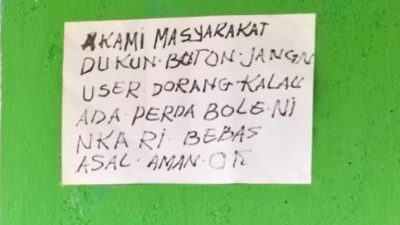 KAMI MASYARAKAT
DUKUN·BOTON·JANGN
USER DORANG·KALAU
ADA·PERDA BOLE·NI
NKA RI·BEBAS
ASAL·AMAN·OK